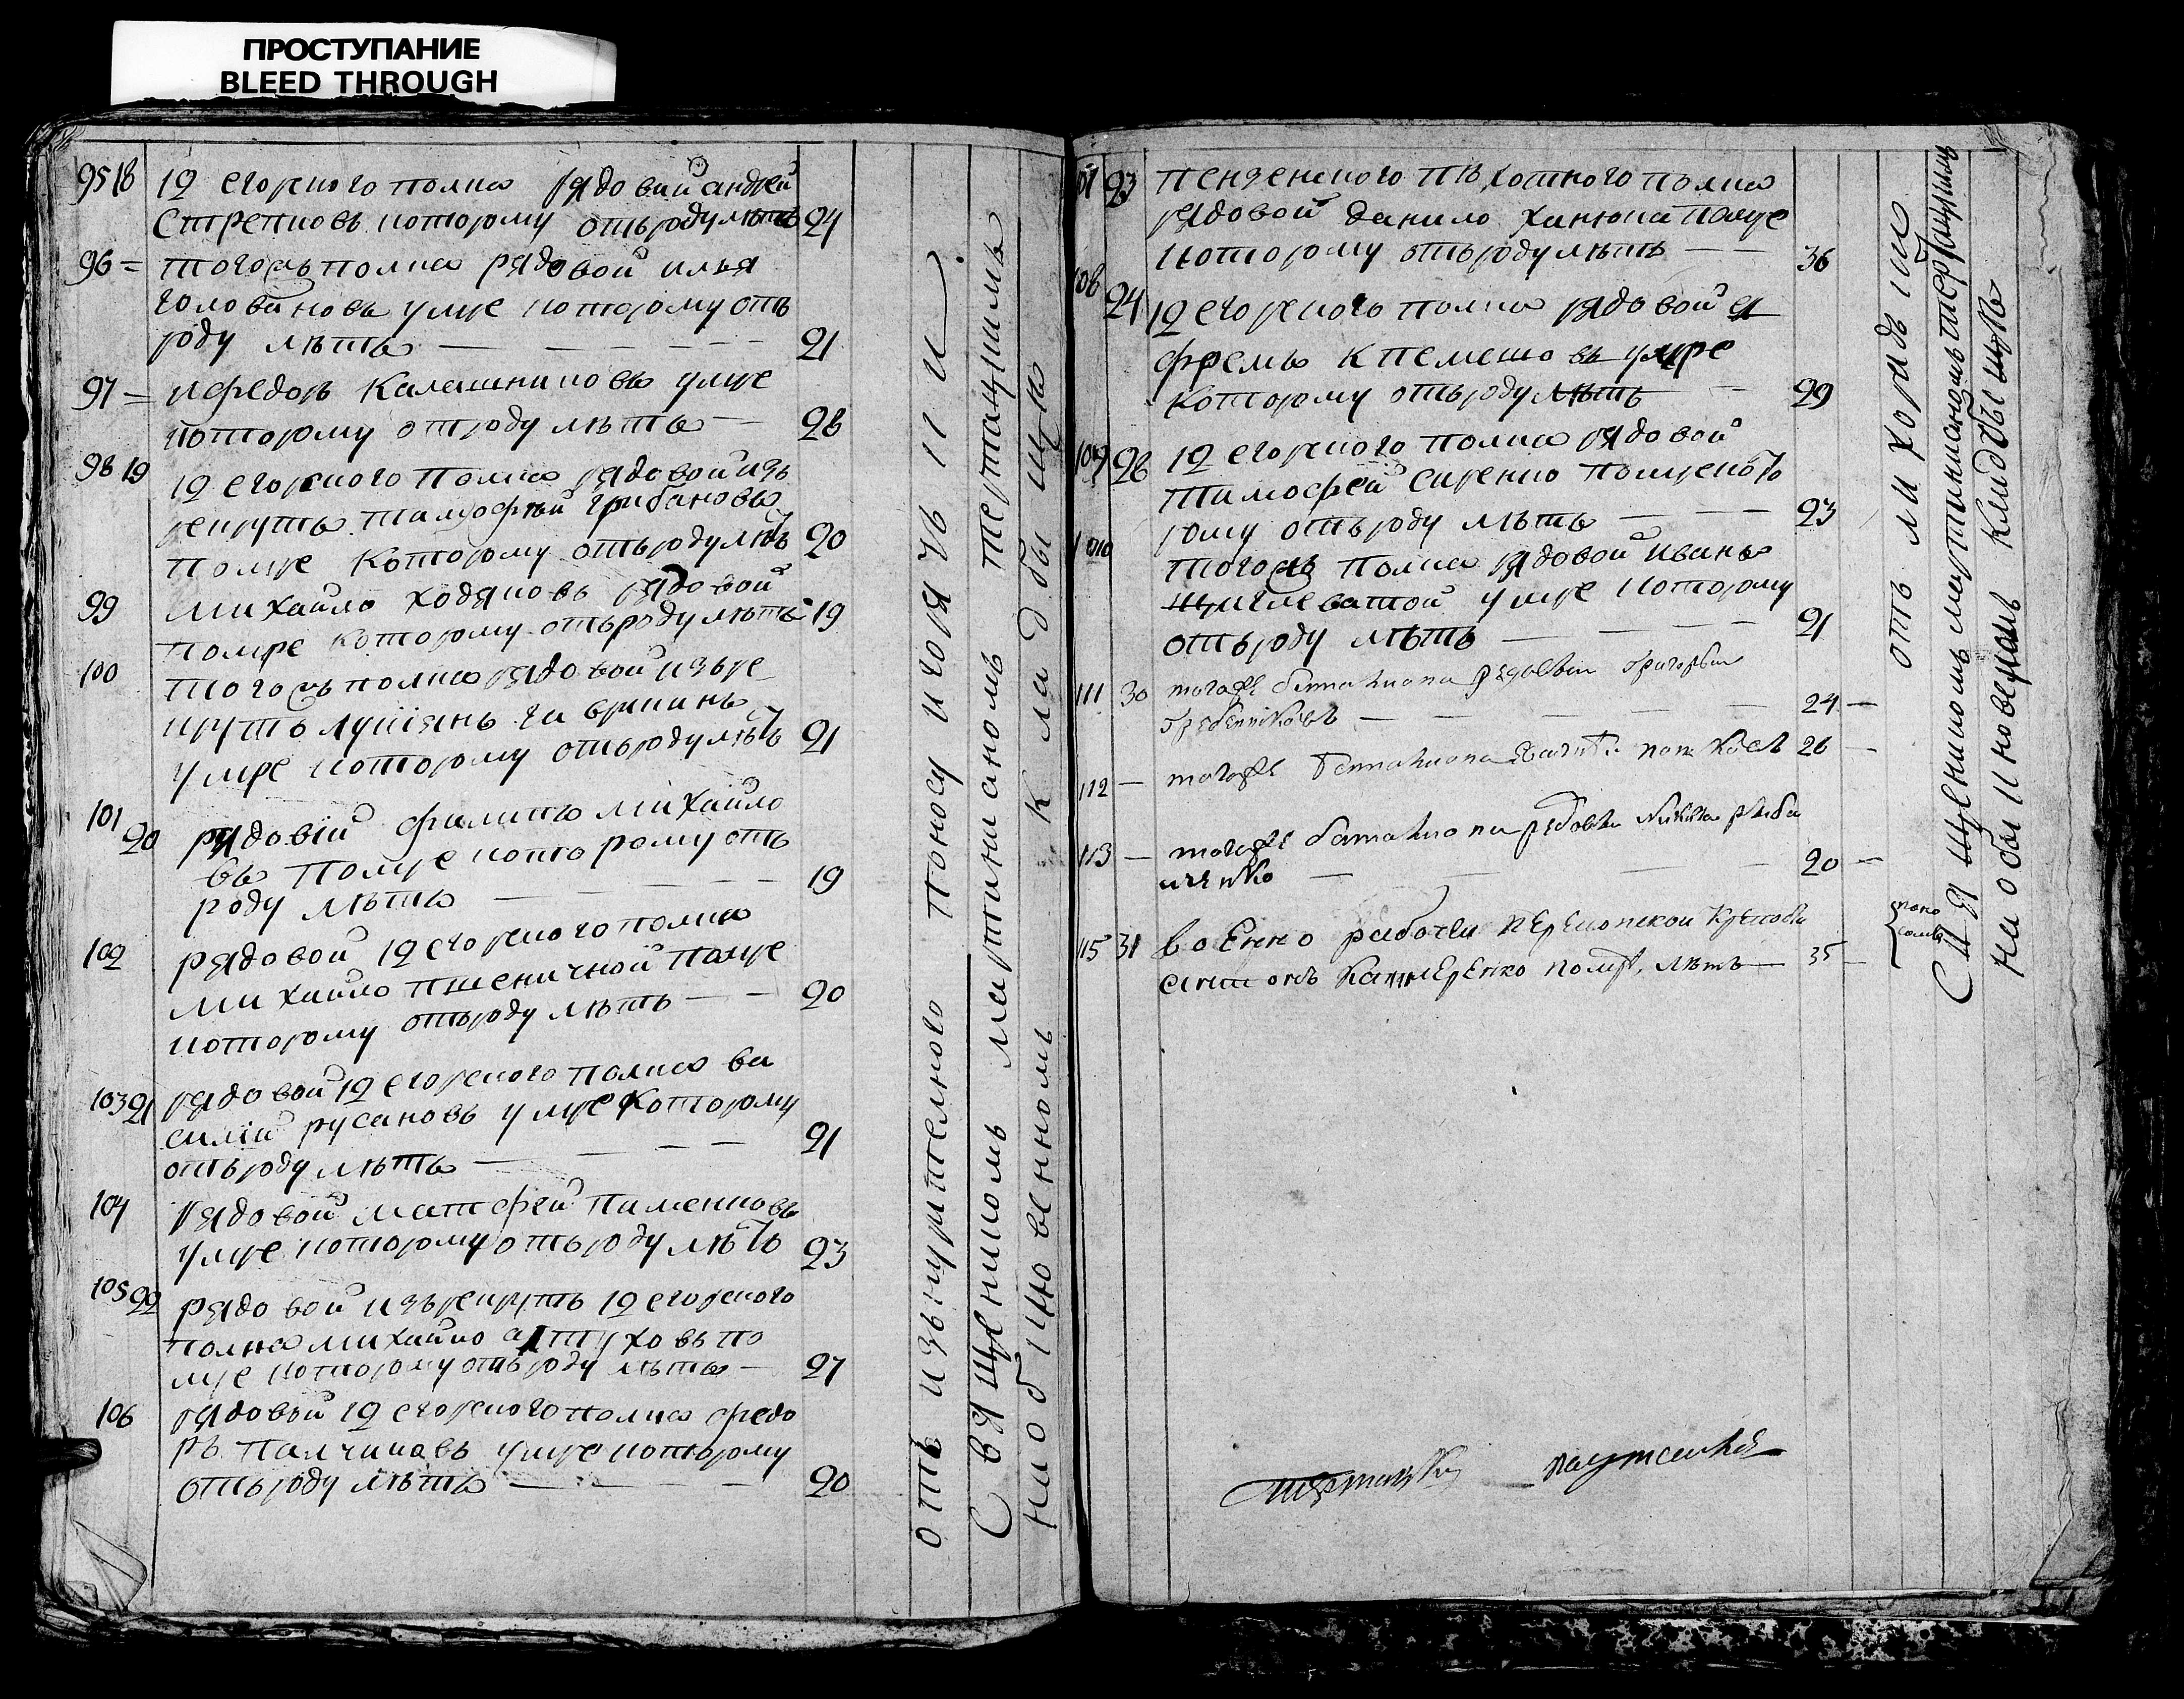 ПРОСТУПАНИЕ
BLEED THROUGH
95 18 12 егорского полка рядовой андрей
Стрепковъ которому отъ роду летъ 24
96 = тогожъ полка рядовой илья
головановъ умре которому отъ
роду летъ — — — — — 21
97 = ифедоръ Калашниковъ умре
которому отроду летъ — 28
98 19 12 егорского полка рядовой изъ
рекрутъ тимофей грибановъ
помре Которому отъ роду летъ 20
99 михайло ходяковъ рядовой
помре которому отъ роду летъ 19
100 тогожъ полка рядовой изъ ре
крутъ лукіянъ
умре которому отъ роду летъ 21
101 20 рядовій филипъ михайло
въ помре которому отъ
роду летъ — — — — 19
102 рядовой 12 егорского полка
михайло пшеничной помре
которому отъ роду летъ — — 20
103 21 рядовой 12 егорского полка ва
силій русановъ умре Которому
отъ роду летъ — — — — 21
104 рядовой матфей пименковъ
умре которому отъ роду летъ 23
105 22 рядовой изъ рекрутъ 12 егорского
полка михайло алтуховъ по
мре которому отъ роду летъ — 27
106 рядовой 12 егорского полка федо
ръ палчиковъ умре которому
отъ роду летъ — — — — 20
отъ изънурителного поносу игорячки
Священникомъ мартиниакомъ тертацкимъ
на общественномъ Кладбище
107 23 пензенского пехотного полка
рядовой данило ханюка помре
которому отъ роду летъ — — 36
108 24 12 егорского полка рядовой е
фремъ
Которому отъ роду летъ — 29
109 28 12 егорского полка рядовой
тимофей сиренко помре кото
рому отъ роду летъ — — — 23
110 тогожъ полка рядовой иванъ
умре которому
отъ роду летъ — — — — 21
111 30 тогоже баталиона рядовый григорый
гребенниковъ — — — — — 24 —
112 — тогоже баталиона 26 —
113 — тогоже баталиона рядовый никита рыба
лченко — — — — 20 —
115 31 военно рабочей перекопской
помре, летъ — 35 —
отъ лихорадъки
Священникомъ мартиниакомъ тертацкимъ
на обыкновеномъ кладбыще